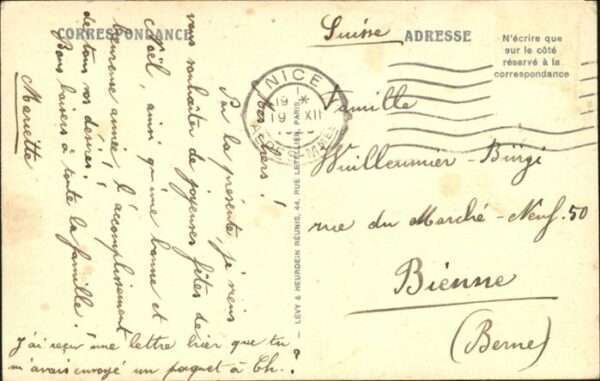 CORRESPONDANCE
Très chers !
Par la présente, je viens
vous souhaiter de joyeuses fêtes de
Noël, ainsi qu'une bonne et
heureuse année, l'accomplissement
de tous vos désirs.
Bons baisers à toute la famille !
Marietta
J'ai reçu une lettre hier que tu
m'avais envoyé un paquet à Ch. ?
LEVY & NEURDEIN RÉUNIS, 44, RUE LETELLIER, PARIS
NICE
19 *
19 XII
ALPES MMES
Suisse
ADRESSE
N'écrire que
sur le côté
réservé à la
correspondance
Famille
Vuilleumier-Bürgi
rue du Marché-Neuf. 50
Bienne
(Berne)